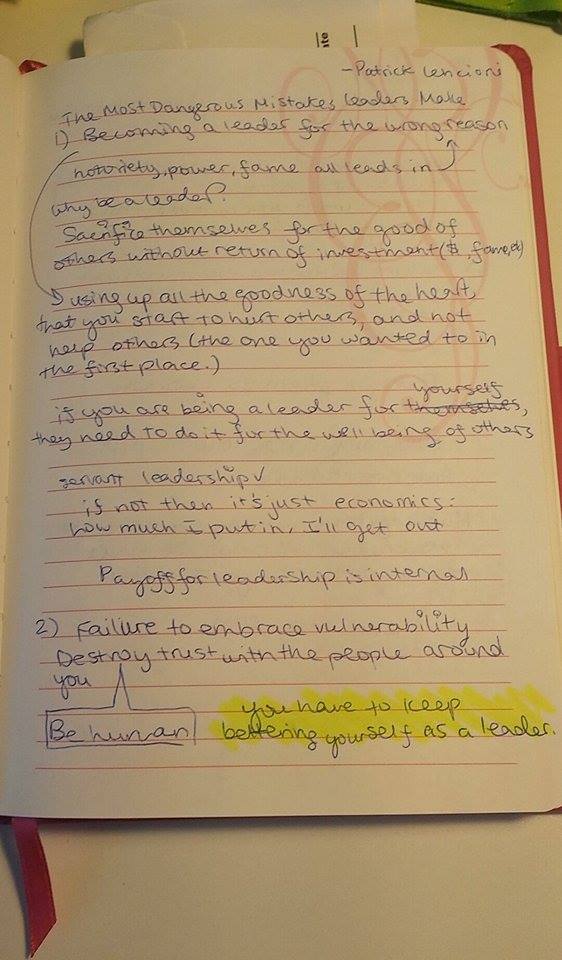 - Patrick Lencioni
The Most Dangerous Mistakes Leaders Make
1) Becoming a leader for the wrong reason
notoriety, power, fame all leads in
why be a leader?
Sacrifice themselves for the good of
others without return of investment ($, fame, etc)
using up all the goodness of the heart,
that you start to hurt others, and not
help others (the one you wanted to in
the first place.)
yourself
if you are being a leader for themselves,
they need to do it for the well being of others
servant leadership ✓
if not then it's just economics:
how much I put in, I'll get out
Payoff for leadership is internal
2) Failure to embrace vulnerability
Destroy trust with the people around
you
you have to keep
Be human
bettering yourself as a leader.